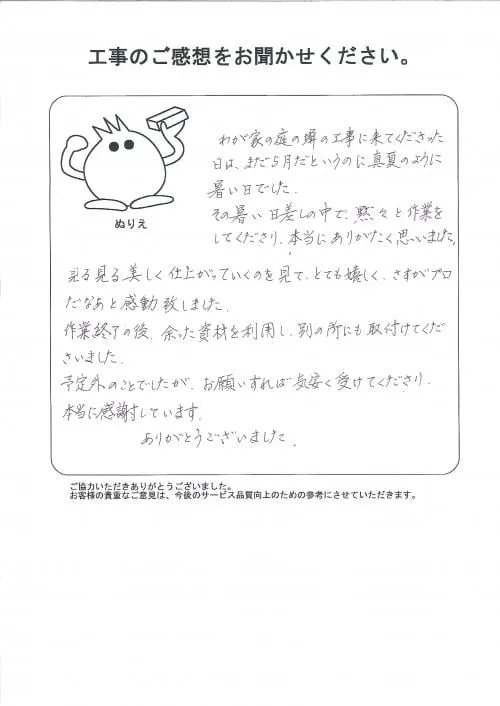 工事のご感想をお聞かせください。
ぬりえ
わが家の庭の塀の工事に来てくださった
日は、まだ5月だというのに真夏のように
暑い日でした。
その暑い日差しの中で、黙々と作業を
してくださり、本当にありがたく思いました。
見る見る美しく仕上がっていくのを見て、とても嬉しく、さすがプロ
だなあと感動致しました。
作業終了の後、余った資材を利用し、別の所にも取付けてくだ
さいました。
予定外のことでしたが、お願いすれば気安く受けてくださり、
本当に感謝しています。
ありがとうございました。
ご協力いただきありがとうございました。
お客様の貴重なご意見は、今後のサービス品質向上のための参考にさせていただきます。